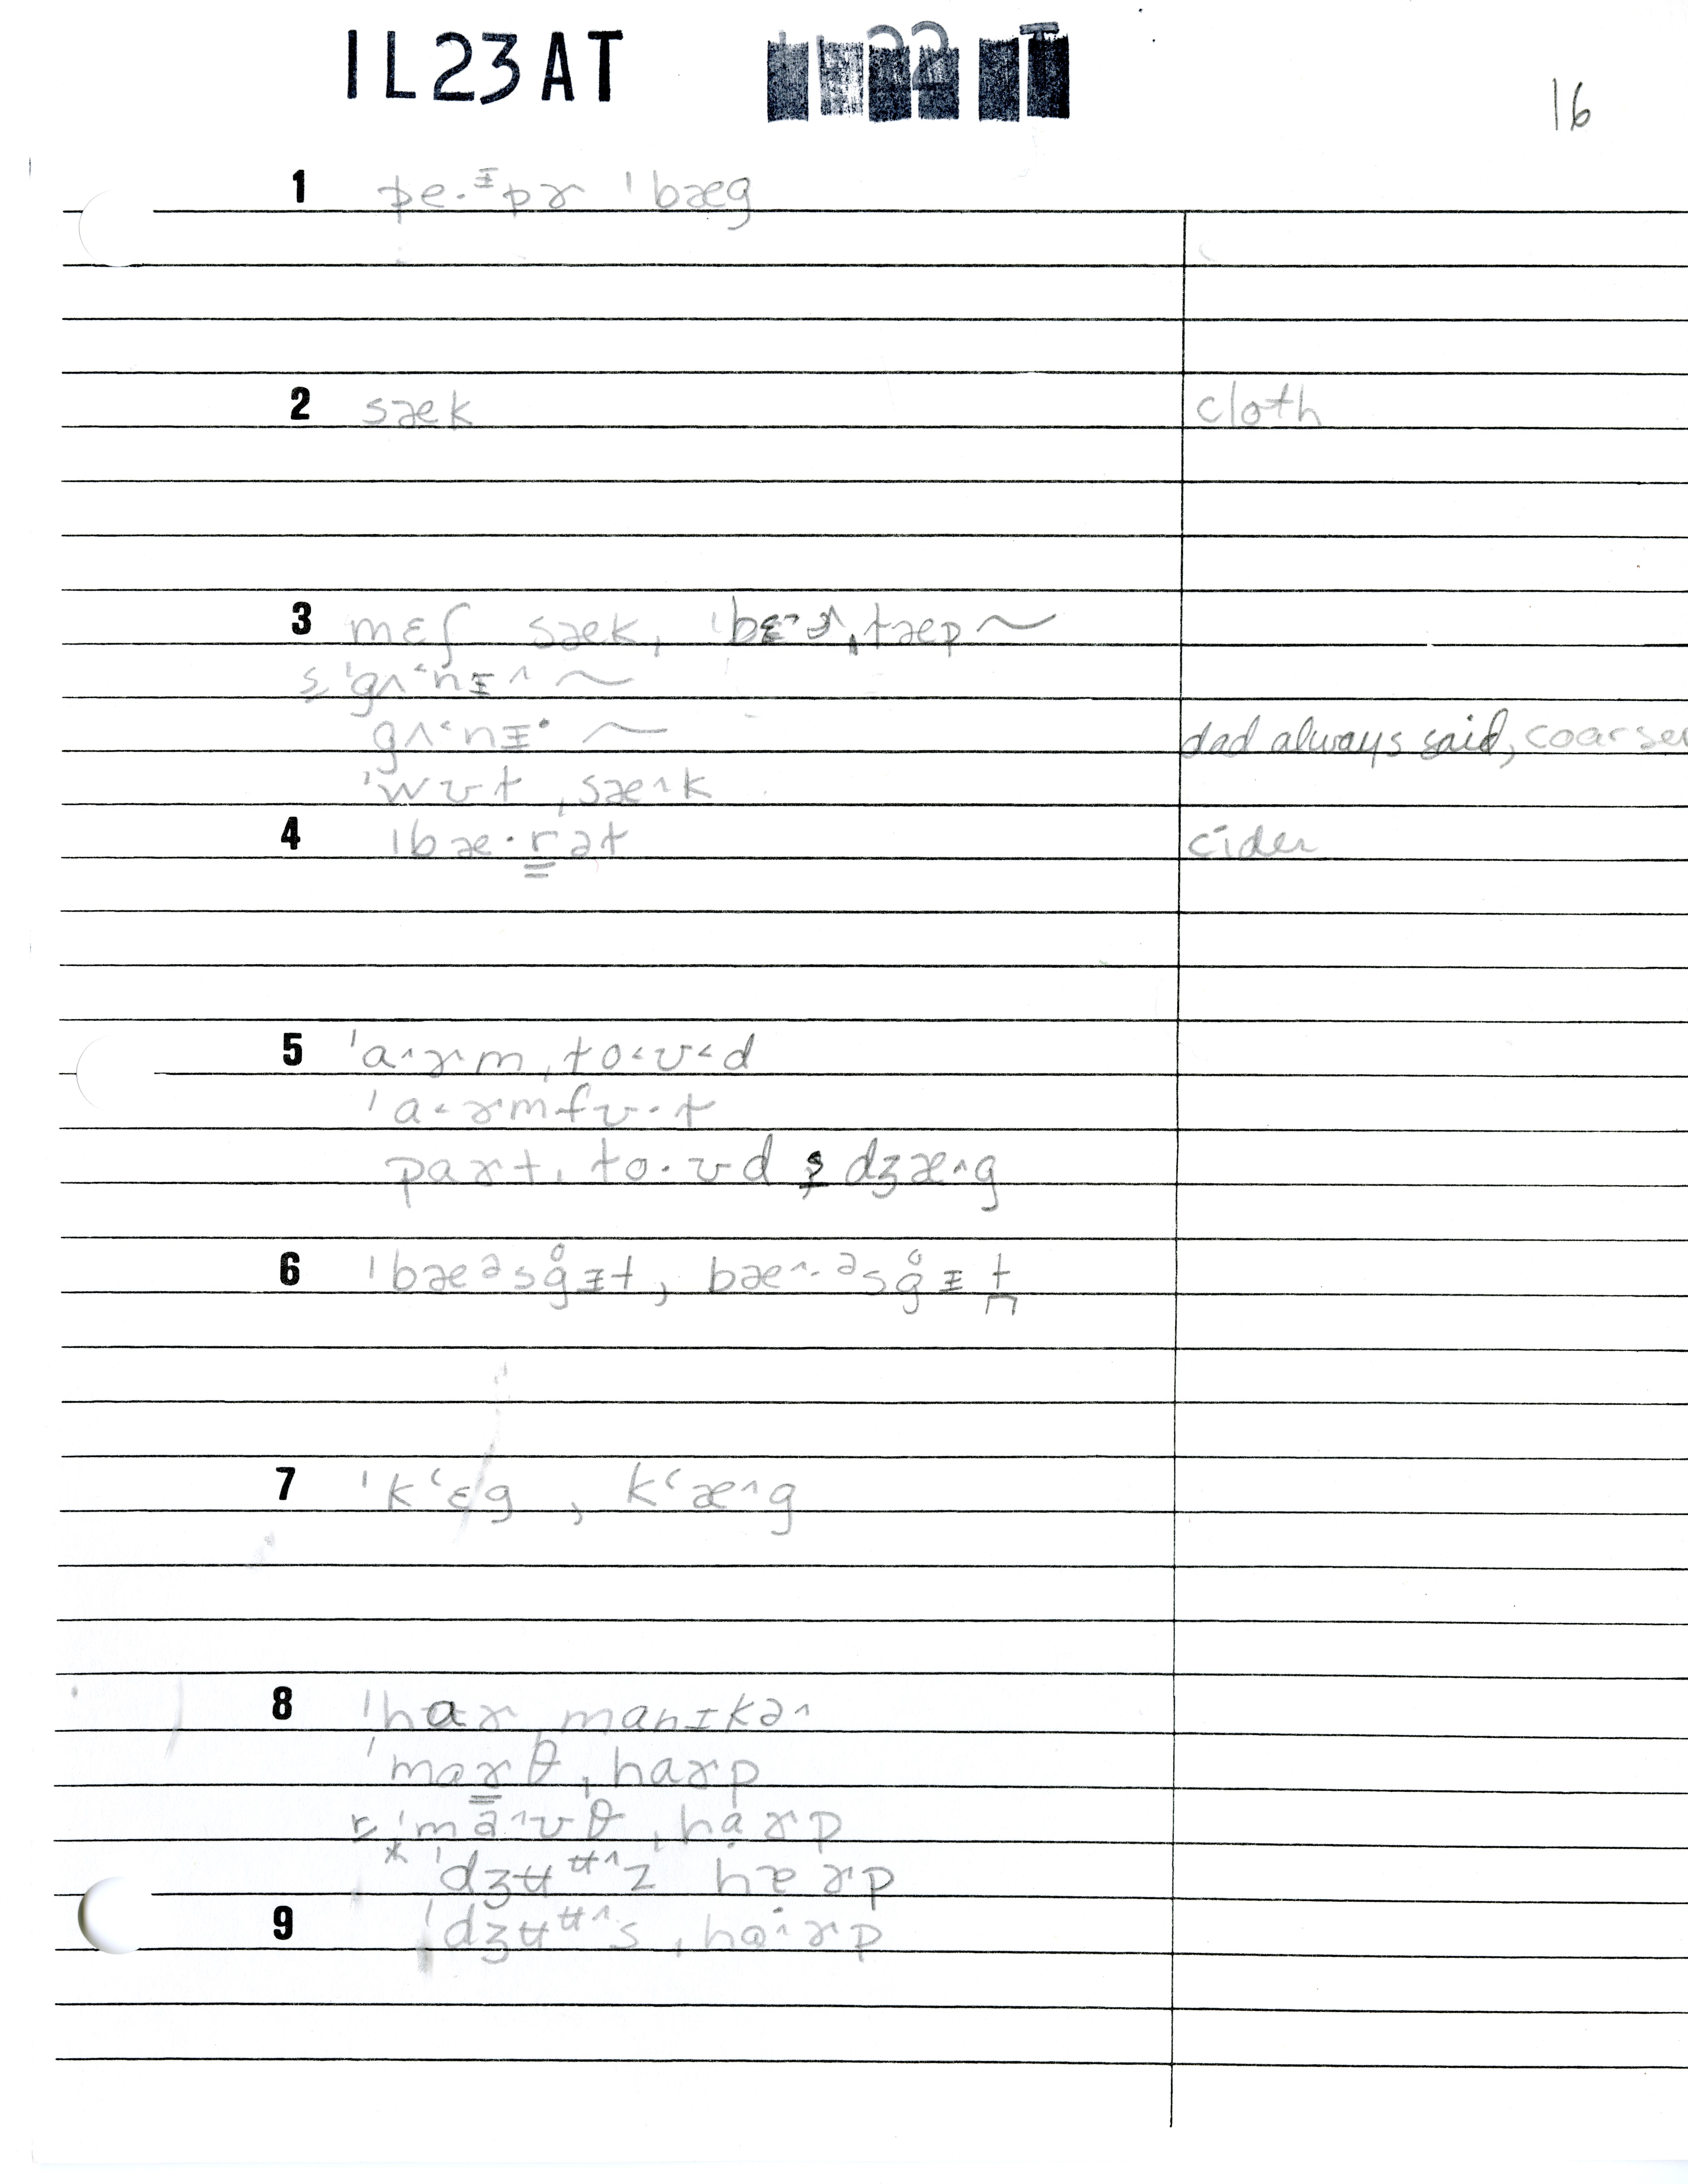 1L23AT
16
1 pe·ᵻpɚ ˈbæg
2 sæk cloth
3 mɛʃ sæk, ˌtæp ~
s ˈgʌ˂nᵻ^ ~
gʌ˂nᵻ· ~ dad always said, coarser
ˈwʊt ˌsæ^k
4 ˈbæ·rət cider
5 ˈa^ɚm ˌto˂ʊ˂d
ˈa˂ɚmfʊ·t
paɚt ˌto·ʊd s dʒæ^g
6 ˈbæᵊsg̊ᵻt, bæ^·ᵊsg̊ᵻt
7 ˈkʻɛg , kʻæ^g
8 ˈhaɚˌmanɪkə^
ˈmaɚθ ˌhaɚp
r ˈma^ʊθ ˌhɑɚp
* ˈdʒʉᶶ^z hɐɚp
9 ˈdʒʉᶶ^s ˌhɑ^ɚp